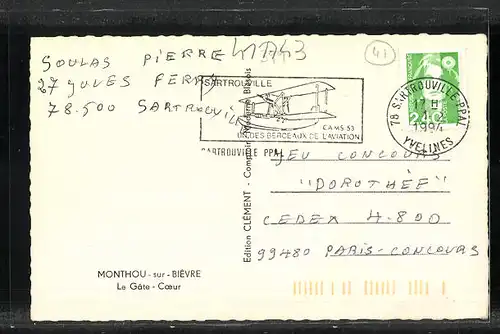 SOULAS PIERRE 41743
27 JULES FERRY
78.500 SARTROUVIL
41
SARTROUVILLE
CAMS 53
UN DES BERCEAUX DE L'AVIATION
SARTROUVILLE PPAL
78 SARTROUVILLE PPAL
17 H
2 - 2
1994
YVELINES
JEU CONCOURS
"DOROTHÉE"
CEDEX 4.800
99480 PARIS-CONCOURS
Edition CLÉMENT - Comptoir Blésois
MONTHOU - sur - BIÈVRE
Le Gâte - Cœur